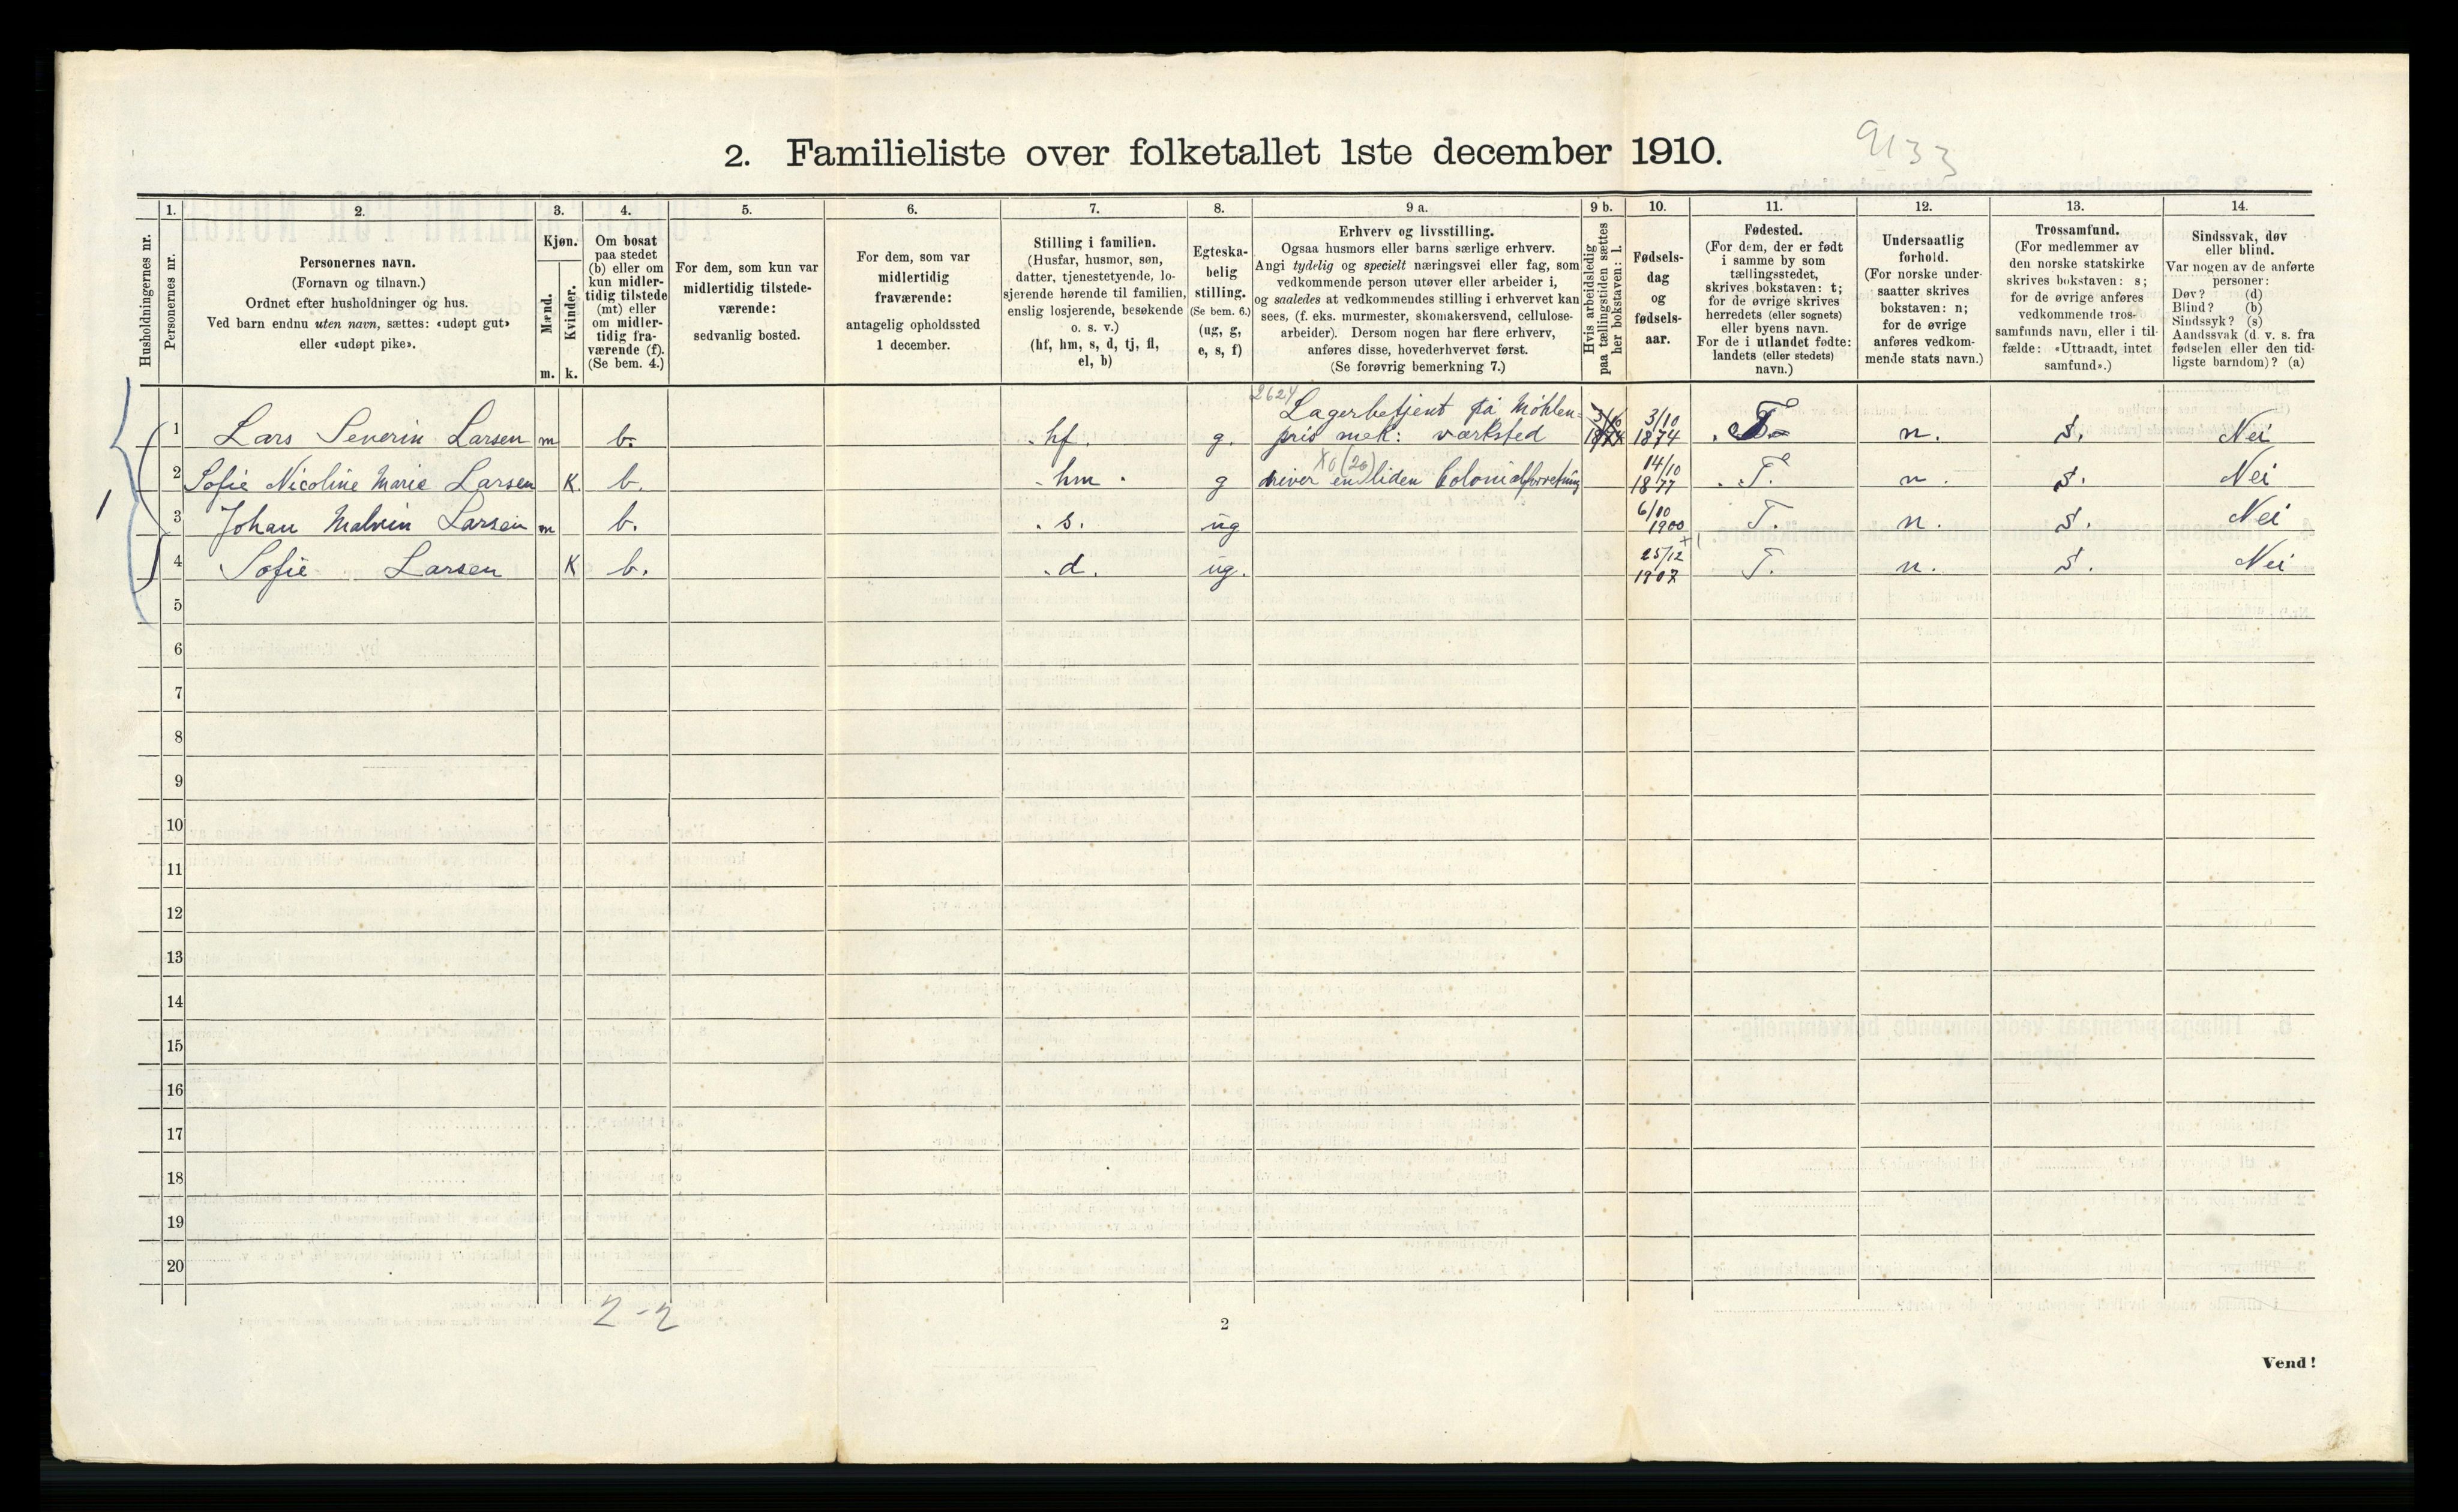 9133
2. Familieliste over folketallet 1ste december 1910.
Husholdningernes nr.
1.
Personernes nr.
2.
Personernes navn.
(Fornavn og tilnavn.)
Ordnet efter husholdninger og hus.
Ved barn endnu uten navn, sættes: «udøpt gut»
eller «udøpt pike».
3.
Kjøn.
Mænd.
Kvinder.
m. k.
4.
Om bosat
paa stedet
(b) eller om
kun midler-
tidig tilstede
(mt) eller
om midler-
tidig fra-
værende (f).
(Se bem. 4.)
5.
For dem, som kun var
midlertidig tilstede-
værende:
sedvanlig bosted.
6.
For dem, som var
midlertidig
fraværende:
antagelig opholdssted
1 december.
7.
Stilling i familien.
(Husfar, husmor, søn,
datter, tjenestetyende, lo-
sjerende hørende til familien,
enslig losjerende, besøkende
o. s. v.)
(hf, hm, s, d, tj, fl,
el, b)
8.
Egteska-
belig
stilling.
(Se bem. 6.)
(ug, g,
e, s, f)
9 a.
Erhverv og livsstilling.
Ogsaa husmors eller barns særlige erhverv.
Angi tydelig og specielt næringsvei eller fag, som
vedkommende person utøver eller arbeider i,
og saaledes at vedkommendes stilling i erhvervet kan
sees, (f. eks. murmester, skomakersvend, cellulose-
arbeider). Dersom nogen har flere erhverv,
anføres disse, hovederhvervet først.
(Se forøvrig bemerkning 7.)
9 b.
Hvis arbeidsledig
paa tællingstiden sættes
her bokstaven: l.
10.
Fødsels-
dag
og
fødsels-
aar.
11.
Fødested.
(For dem, der er født
i samme by som
tællingsstedet,
skrives bokstaven: t;
for de øvrige skrives
herredets (eller sognets)
eller byens navn.
For de i utlandet fødte:
landets (eller stedets)
navn.)
12.
Undersaatlig
forhold.
(For norske under-
saatter skrives
bokstaven: n;
for de øvrige
anføres vedkom-
mende stats navn.)
13.
Trossamfund.
(For medlemmer av
den norske statskirke
skrives bokstaven: s;
for de øvrige anføres
vedkommende tros-
samfunds navn, eller i til-
fælde: «Uttraadt, intet
samfund».)
14.
Sindssvak, døv
eller blind.
Var nogen av de anførte
personer:
Døv? (d)
Blind? (b)
Sindssyk? (s)
Aandssvak (d. v. s. fra
fødselen eller den tid-
ligste barndom)? (a)
2624
Lagerbetjent på Möhlen=
1 Lars Severin Larsen m b. hf. g. pris mek: værksted 3/10 1874 T. n. s. Nei
X6 (20)
2 Sofie Nicoline Marie Larsen K. b. hm. g driver en liden Colonialforretning 14/10 1877 T. n. s. Nei
3 Johan Malvin Larsen m b. s. ug 6/10 1900 T. n. s. Nei
4 Sofie Larsen K b. d. ug. 25/12 1907 T. n. s. Nei
1
5
6
7
8
9
10
11
12
13
14
15
16
17
18
19
20
2-2
2
Vend!